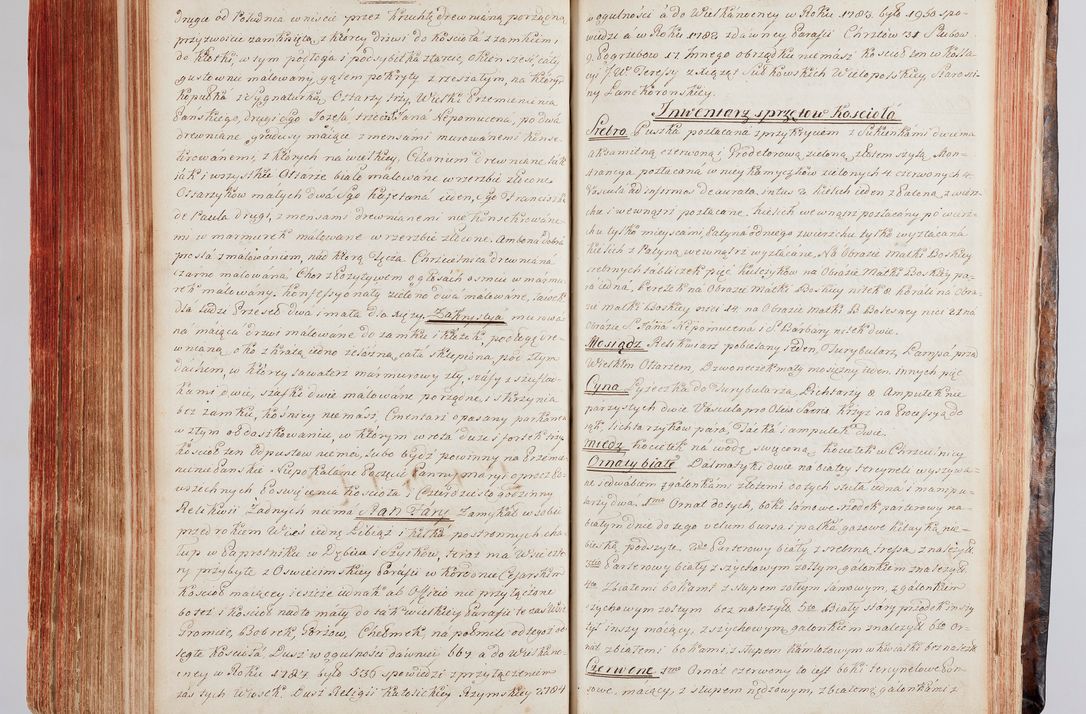 drugie od Południa w niście przez kruchtę drewnianą porządną
przyzwoicie zamknięta, z którey drzwi do kościoła z zamkiem,
do kłotki, w tym podłoga i podsybitka z tarcic, Okien sześć, cały
gustownie malowany, gątem pokryty z resztą tym, na którym
kopułka z Sygnaturką. Ołtarzy trzy, Wielki Przemienienia
Pańskiego, drugi S.go Jozefa, trzeci S. Jana Nepomucena, po dwa
drewniane gradusy maiące z mensami murowanemi konse-
krowanemi, z których na wielkiey Ciborium drewniane tak
iak i wszystkie Ołtarze biało malowane w rzeźbie złocone.
Ołtarzyków małych dwa S.go Kajetana ieden, S.go Franciszka
de Paula drugi, z mensami drewnianemi nie konsekrowane-
mi w marmurek malowane w rzerzbie złocone. Ambona dobra
prosta z malowaniem, nad którą Tęcza. Chrzcielnica drewniana
czarno malowana. Chor z Pozytywem o głosach osmiu w marmu-
rek malowany. Konfessyonały zielono dwa malowane, ławek
dla ludzi Prześć dwa i mała dla Xięży. Zakrystya murowa-
na maiąca drzwi malowane do zamku i kłotek podłogę dre-
wnianą oko z kratą iedno żelazną, cała sklepiona, pod złym
dachem, w którey lawaterz marmurowy zły, szafy z szufla-
kami dwie, szafki dwie malowane porządne, i skrzynia
bez zamku, kośnicy nie masz. Cmentarz opasany parkanem
w złym od dasikowaniu, w którym wrota duże i forsek trzy
kościoł ten Odpustow niema, lubo bydź powinny na Przemie-
nienie Pańskie. Niepokalane Poczęcie Panny Maryi oprocz Po-
wszechnych Poswięcenia kościoła i Czterdziesto godzinny
Relikwii Żadnych niema. Stan Fary Zamykał w sobie
przed rokiem Wieś iedną Libiąż i kilka postronnych cha-
łup w Paprotniku w Dębiu i Szyikow, teraz ma Wsie czte-
ry przybyłe z Oswiecimskiey Parafii w kordonie Cesarskim
kościoł maiącey i ieszcze iednak ab Officio nie przyłączone
bo też i kościoł na to mały do tak wielkiey Parafii te zaś Wsie
Gromiec, Bobrek, Gorzow, Chełmek, na połmile od tego od-
ległe kościoła. Dusz w ogulnosci dawniey 667 a do Wielkano-
cney w Roku 1787 było 536 spowiedzi z przyłączeniem
zaś tych Wiosek. Dusz Religii katolickiey Rzymskiey 2704
w ogulności á do Wielkánocney w Roku 1783 był 1950 spo-
wiedzi a w Roku 1788 z dawney Parafii Chrztow 31 Slubow
9. Pogrzebow 17 Innego obrządku niemász kościoł ten w kolla-
cyi J.W. Teresy z Xiążąt Sułkowskich Wielopolskiey Starosci-
ny Lanckoronskiey.
Inwentarz sprzętow Kościoła
Srebro. Puszka pozłacana z przykryciem z Sukienkami dwiema
aksamitną czerwoną i Prodetorową zieloną złotem szytą. Mon-
strancya pozłacana w niey kamyczków zielonych 4 czerwonych 4.
Vascula ad infirmos deaurata, intus 2. kielich ieden z Pateną z wierz-
chu i wewnątrz pozłacane, kielich wewnątrz pozłacany, po wierz-
chu tylko mieyscami, Patyna od niego zwierzchu tylko wyzłacana
kielich z Patyną wewnątrz wyzłacane. Na Obrazie Matki Boskiey
srebrnych tabliczek pięć kulczyków na Obrazie Matki Boskiey pa-
ra iedna, Perełek na Obrazie Matki Boskiey nitek 8. korali na Obra-
zie matki Boskiey nici 14. na Obrazie Matki B. Bolesney nici 21 na
Obrazie S. Jana Nepomucena i S. Barbary nitek dwie.
Mosiądz Relikwiarz pobielany ieden, Turybularz, Lampa przed
Wielkim Ołtarzem, Dzwoneczek mały mosiężny ieden. innych pięć
Cyna Łyżeczka do Turybularza, Lichtarzy 8 Ampułek nie
parzystych dwie Vascula pro Oleis Sacris krzyż na Processyą do
iąk, lichtarzyków para, Tacka i ampułek dwie.
Miedź kociełek na wodę swięconą, kociełek w Chrzcielnicy
Ornaty białe Dalmatyki dwie na białey tercyneli wyszywa-
ne iedwabiem z galonkami złotemi do tych stuła iedna i manipu-
larzy dwa. 1mo Ornat do tych, boki lamowe srodek parterowy na
białym dnie do tego velum bursa i palka gazowe kitayką nie-
bieską podszyte. 2do Parterowy biały z srebrną frefsą z należyt.
3tio Parterowy biały z szychowym żołtym galonkiem z należyt.
4to Złotemi bokami z słupem żołtym lamowym, z galonkiem
szychowym żołtym bez należyt. 5to Biały stary przodek inszy
tył inszy maiący, z szychowym galonkiem z należyt. 6to Or-
nat z białemi bokami z słupem kamlotowym w kwiatki bez należyt.
Czerwone 1mo Ornat czerwony to iest boki tercynelowe Pon-
sowe, maiący, z słupem nędzowym, z białemi galonkami z